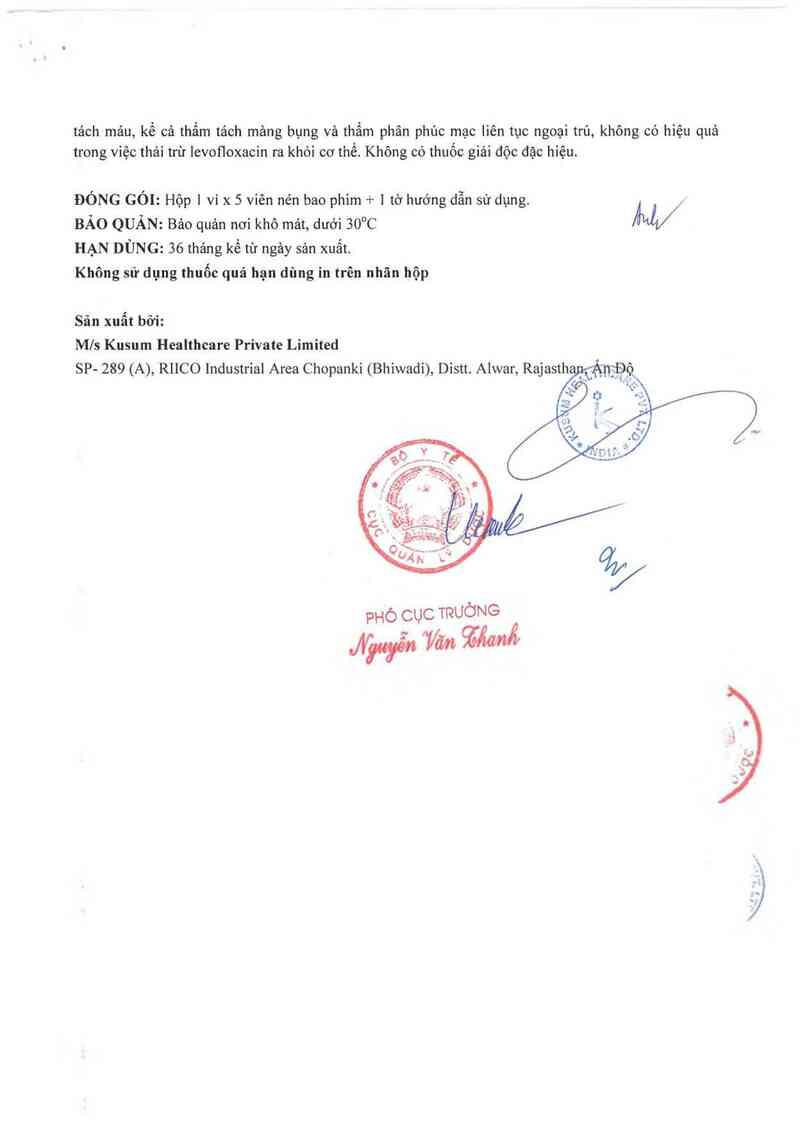 tách máu, kể cả thẩm tách màng bụng và thẩm phân phúc mạc liên tục ngoại trú, không có hiệu quả
trong việc thải trừ levofloxacin ra khỏi cơ thể. Không có thuốc giải độc đặc hiệu.
ĐÓNG GÓI: Hộp 1 vỉ x 5 viên nén bao phim + 1 tờ hướng dẫn sử dụng.
BẢO QUẢN: Bảo quản nơi khô mát, dưới 30°C
HẠN DÙNG: 36 tháng kể từ ngày sản xuất.
Không sử dụng thuốc quá hạn dùng in trên nhãn hộp
Sản xuất bởi:
M/s Kusum Healthcare Private Limited
SP- 289 (A), RIICO Industrial Area Chopanki (Bhiwadi), Distt. Alwar, Rajasthan, Ấn Độ
KUSUM HEALTHCARE PVT. LTD. * INDIA *
BỘ Y TẾ
CỤC QUẢN LÝ DƯỢC
PHÓ CỤC TRƯỞNG
Nguyễn Văn Thanh
DƯỢC